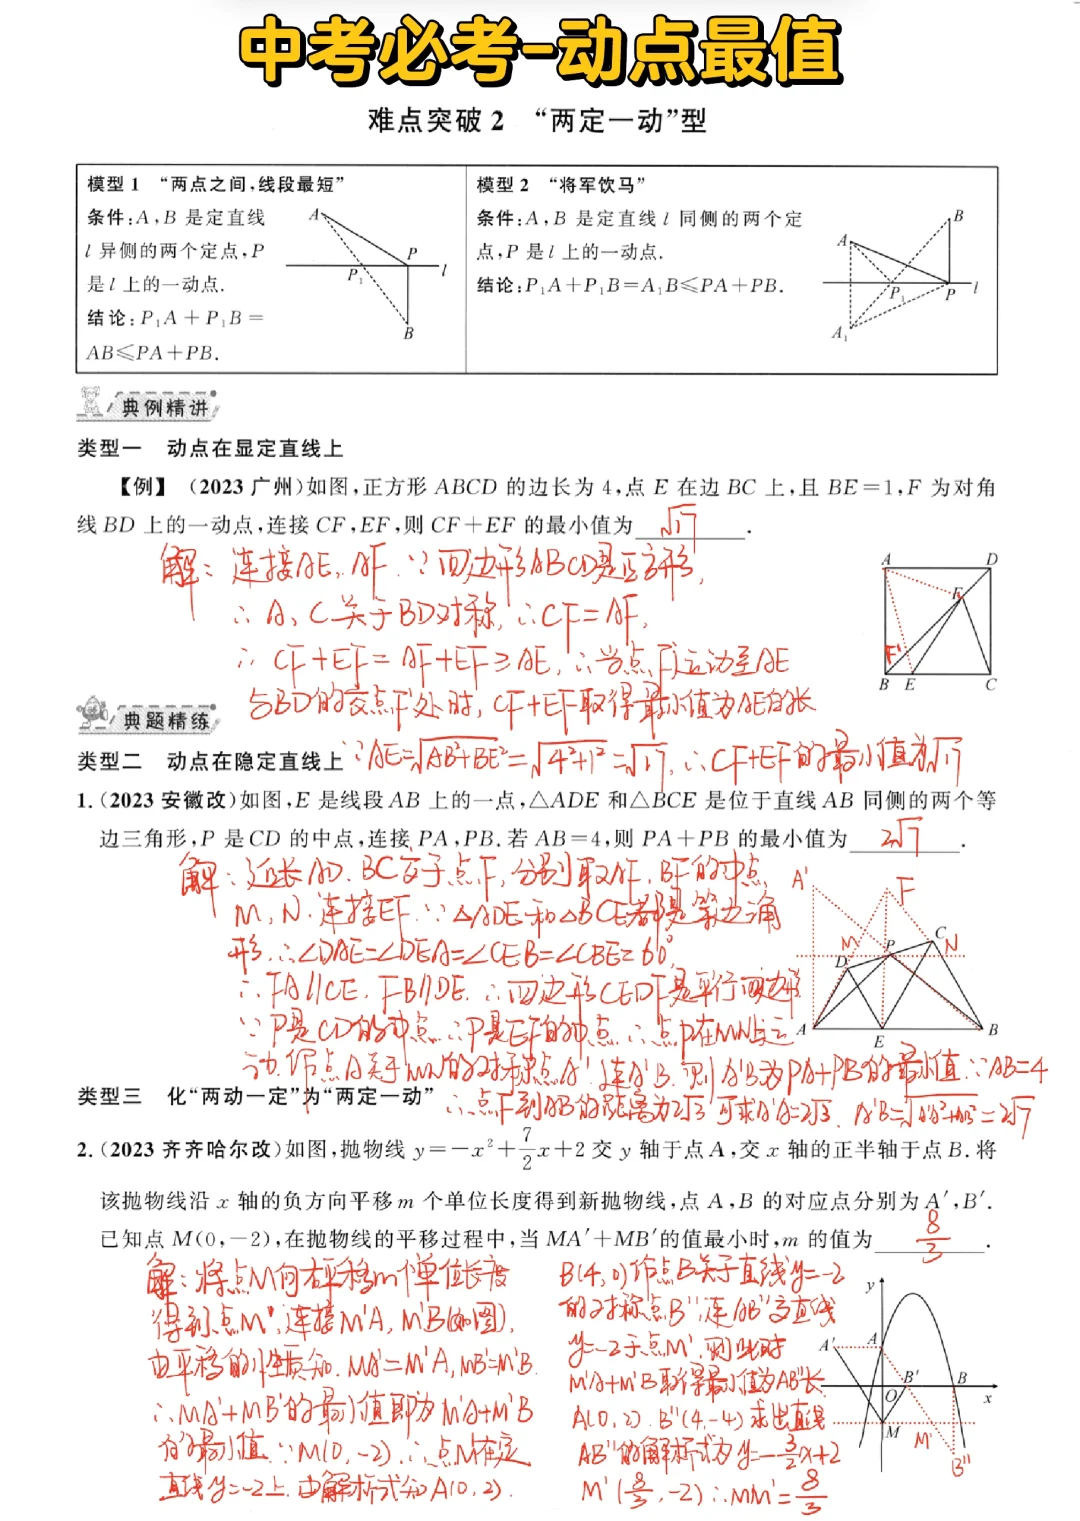 中考必考-动点最值
难点突破2 “两定一动”型
模型1 “两点之间,线段最短”
条件:A,B 是定直线
l 异侧的两个定点,P
是 l 上的一动点.
结论:P₁A+P₁B=
AB≤PA+PB.
A
P
P₁
l
B
模型2 “将军饮马”
条件:A,B 是定直线 l 同侧的两个定
点,P 是 l 上的一动点.
结论:P₁A+P₁B=A₁B≤PA+PB.
B
A
P₁
P
l
A₁
典例精讲
类型一 动点在显定直线上
【例】(2023广州)如图,正方形 ABCD 的边长为 4,点 E 在边 BC 上,且 BE=1,F 为对角
线 BD 上的一动点,连接 CF,EF,则 CF+EF 的最小值为 √17 .
解:连接AE、AF.∵四边形ABCD是正方形,
∴A、C关于BD对称,∴CF=AF,
∴CF+EF=AF+EF≥AE,∴当点F运动至AE
与BD的交点F'处时,CF+EF取得最小值为AE的长
A
D
F
F'
B
E
C
典题精练
∵AE=√AB²+BE²=√4²+1²=√17,∴CF+EF的最小值为√17
类型二 动点在隐定直线上
1.(2023安徽改)如图,E 是线段 AB 上的一点,△ADE 和△BCE 是位于直线 AB 同侧的两个等
边三角形,P 是 CD 的中点,连接 PA,PB.若 AB=4,则 PA+PB 的最小值为 2√7 .
解:延长AD、BC交于点F,分别取AF、BF的中点
M,N.连接EF.∵△ADE和△BCE都是等边三角
形.∴∠DAE=∠DEA=∠CEB=∠CBE=60°,
∴FA∥CE.FB∥DE.∴四边形CEDF是平行四边形
∵P是CD的中点∴P是EF的中点.∴点P在MN上运
动.作点A关于MN的对称点A'.连A'B.则A'B为PA+PB的最小值.∵AB=4
∴点F到AB的距离为2√3 可求A'A=2√3. A'B=√AA'²+AB²=2√7
A'
F
M
P
C
N
D
A
E
B
类型三 化“两动一定”为“两定一动”
2.(2023齐齐哈尔改)如图,抛物线 y=-x²+7/2x+2 交 y 轴于点 A,交 x 轴的正半轴于点 B.将
该抛物线沿 x 轴的负方向平移 m 个单位长度得到新抛物线,点 A,B 的对应点分别为 A′,B′.
已知点 M(0,-2),在抛物线的平移过程中,当 MA′+MB′的值最小时,m 的值为 8/3 .
解:将点M向右平移m个单位长度
得到点M',连接M'A,M'B(如图),
由平移的性质知.MA'=M'A,MB'=M'B.
∴MA'+MB'的最小值即为M'A+M'B
的最小值.∵M(0,-2).∴点M'在定
直线y=-2上.由解析式知A(0,2).
B(4,0)作点B关于直线y=-2
的对称点B'',连AB''交直线
y=-2于点M'.则此时
M'A+M'B取得最小值为AB''长
A(0,2).B''(4,-4)求出直线
AB''的解析式为y=-3/2x+2
M'(8/3,-2)∴MM'=8/3
y
A′
A
B′
B
O
x
M
M'
B''